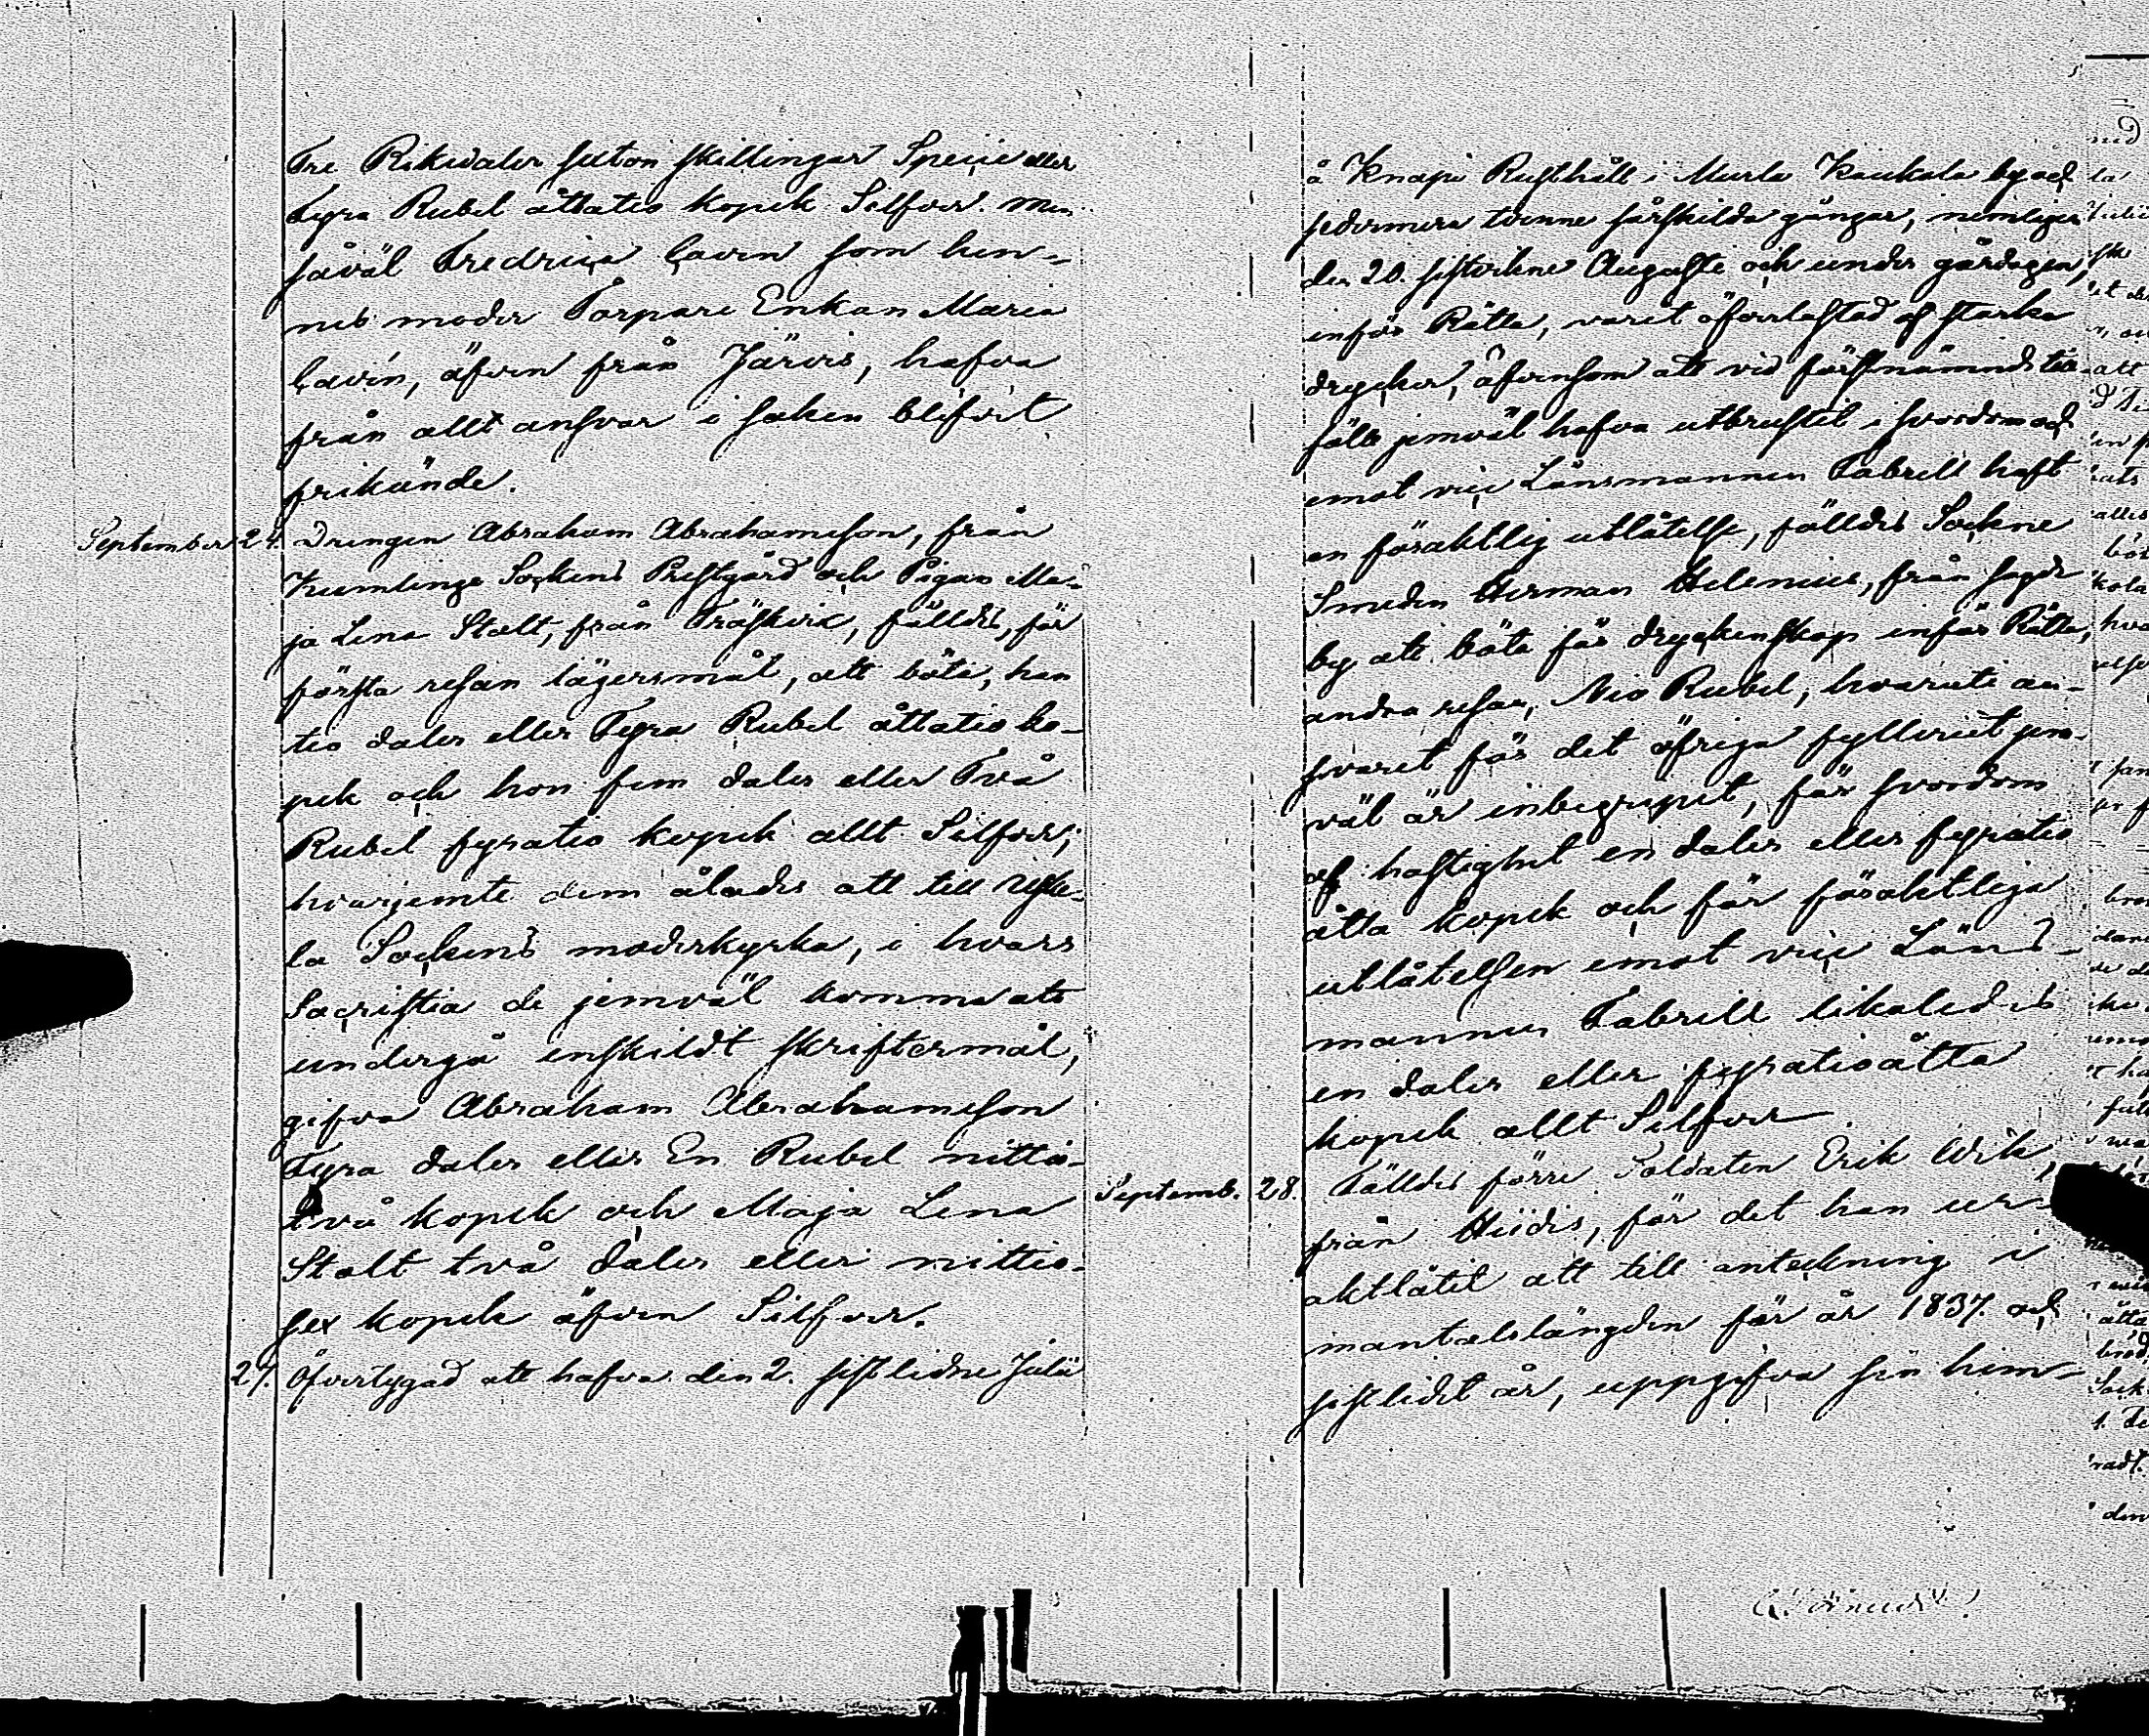 Tre Riksdaler sexton skillingar Specie eller
Fyra Rubel åttatio kopek Silfver. Men
såväl Fredrica Cavén som hen-
nes moder Torpare Enkan Maria
Cavén, äfven från Järvis, hafva
från allt ansvar i saken blifvit
frikände.
September 24. Drengen Abraham Abrahamsson, från
Kumlinge Sockens Prestgård och Pigan Ma-
ja Lena Stolt, från Träskvik, fälldes, för
första resan lägersmål, att böta, han
tio daler eller Fyra Rubel åttatio ko-
pek och hon fem daler eller Två
Rubel fyratio kopek allt Silfver;
hvarjemte dem ålades att till
la Sockens moderkyrka, i hvars
Sacristia de jemväl komma att
undergå enskildt skriftermål,
gifva Abraham Abrahamsson
Fyra daler eller En Rubel nittio-
två kopek och Maja Lena
Stolt två daler eller nittio-
sex kopek äfven Silfver.
27. Öfvertygad att hafva den 2. sistlidne Julii
å Knapi Rusthåll i Murla Kaukola by och
sedermera tvenne särskilda gånger, nemligen
den 20. sistvikne Augusti och under gårdagen,
inför Rätta, varit öfverlastad af starka
drycker, äfvensom att vid förstnämnde till-
fälle jemväl hafva utbrustit i svordom och
emot vice Länsmannen Tabrell haft
en föraktlig utlåtelse, fälldes Sockne
Smeden Herman Helenius, från
by att böta för dryckenskap inför Rätta,
andra resan, Nio Rubel, hvaruti an-
svaret för det öfriga fylleriet jem-
väl är inbegripet, för svordom
af hastighet en daler eller fyratio
åtta kopek och för föraktliga
utlåtelsen emot vice Läns-
mannen Tabrell likaledes
en daler eller fyratioåtta
kopek allt Silfver
Septemb. 28. Fälldes förre Soldaten Erik Wik
från Hiidis, för det han ur-
aktlåtit att till anteckning i
mantalslängden för år 1837. och
sistlidet år, uppgifva sin hem-